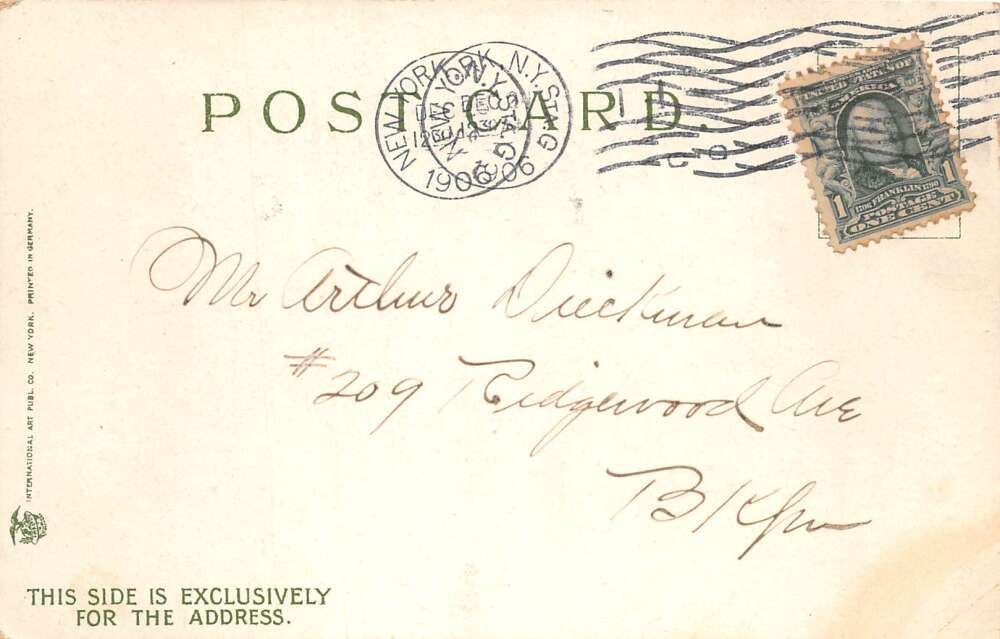 POST CARD.
NEW YORK, N.Y. STA. G
1906
UNITED STATES OF
AMERICA
1706 FRANKLIN 1790
1 POSTAGE 1
ONE CENT
Mr Arthur Dieckman
#209 Ridgewood Ave
Bklyn
INTERNATIONAL ART PUBL. CO. NEW YORK. PRINTED IN GERMANY.
THIS SIDE IS EXCLUSIVELY
FOR THE ADDRESS.